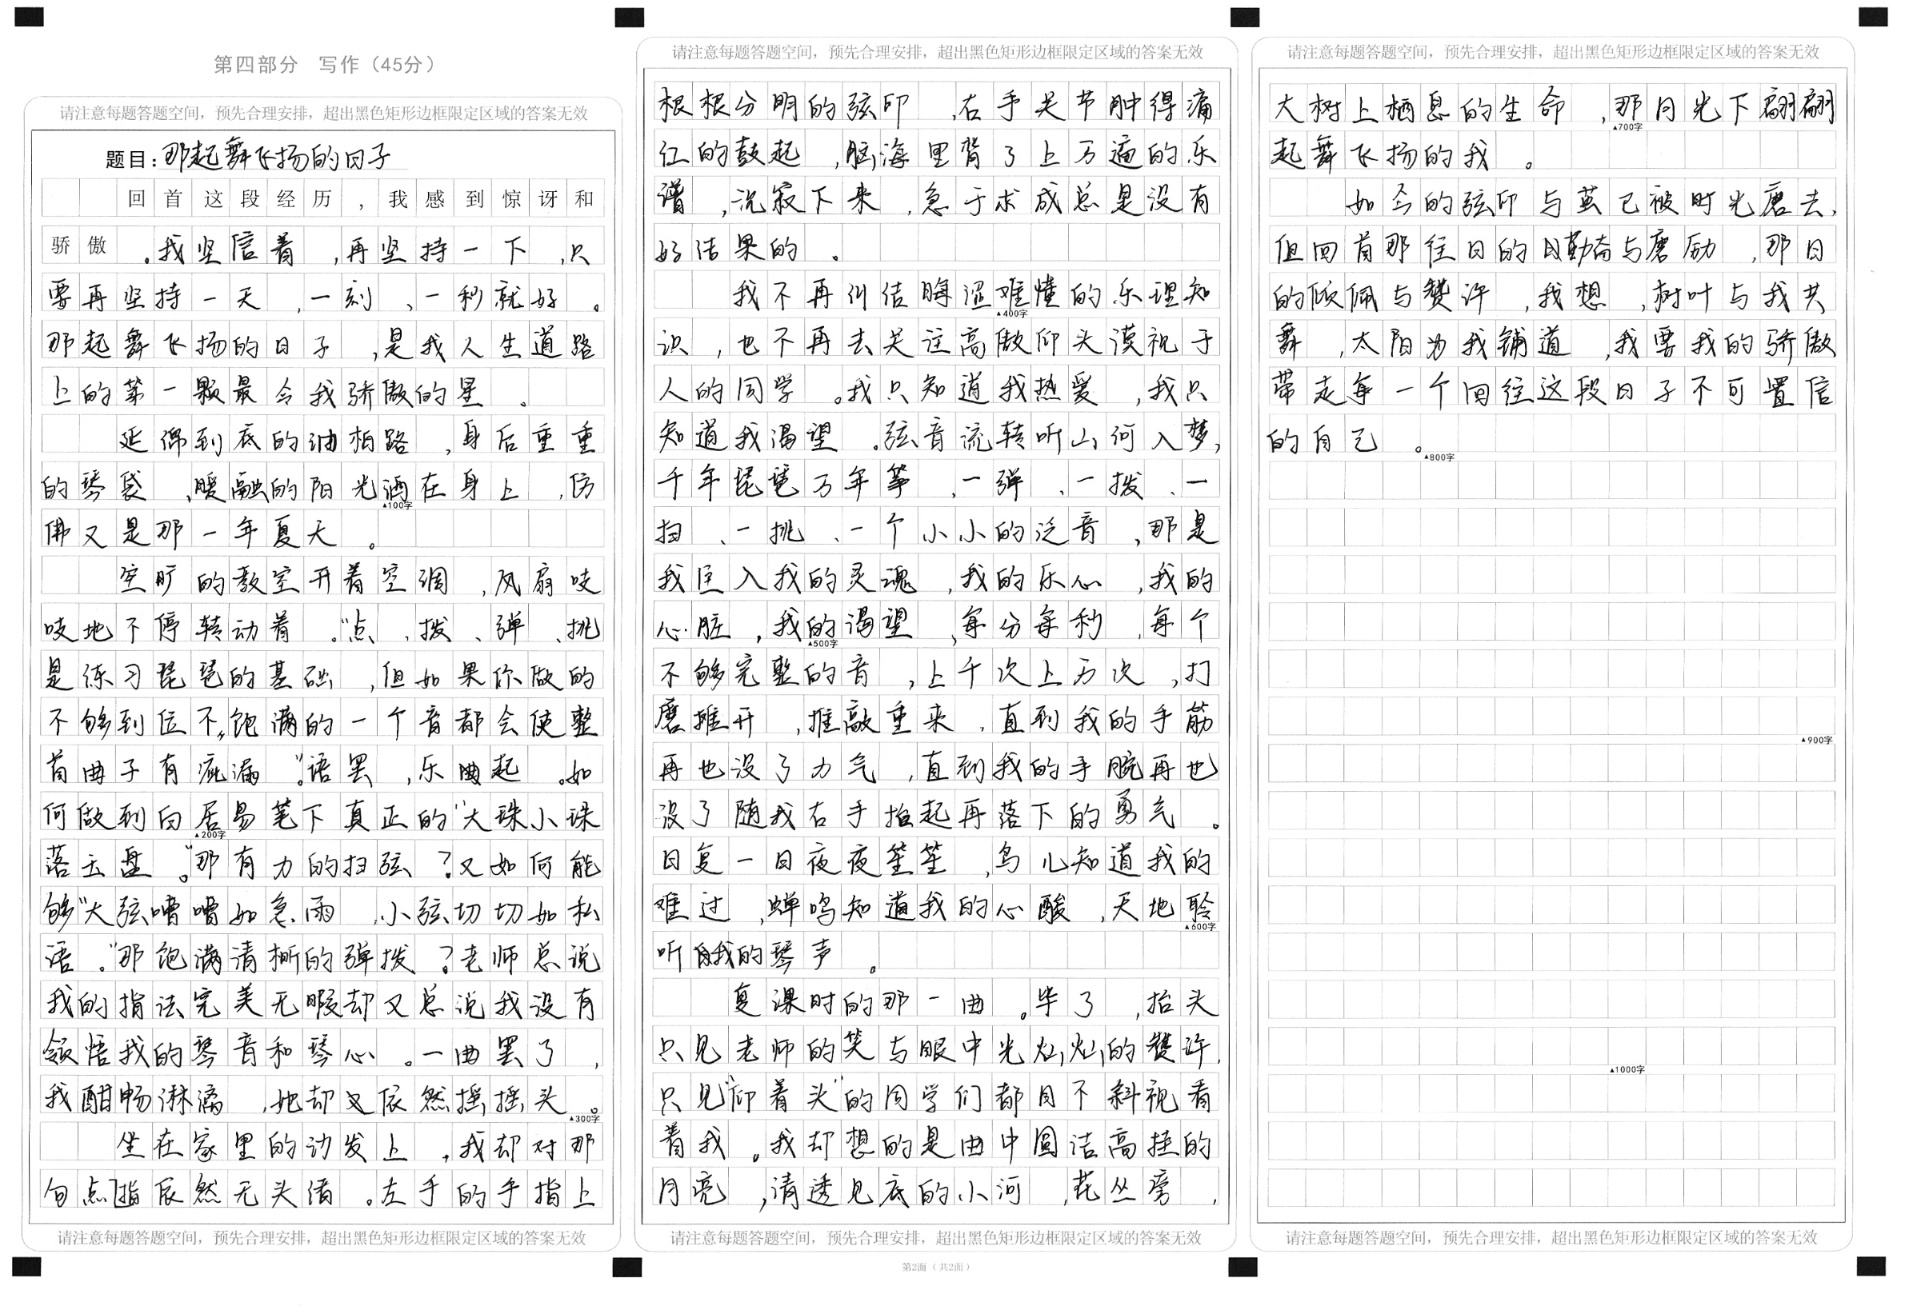 第四部分 写作（45分）
请注意每题答题空间，预先合理安排，超出黑色矩形边框限定区域的答案无效
题目：那起舞飞扬的日子
回首这段经历，我感到惊讶和
骄傲。我坚信着，再坚持一下，只
要再坚持一天，一刻、一秒就好。
那起舞飞扬的日子，是我人生道路
上的第一颗最令我骄傲的星。
延绵到底的油柏路，身后重重
的琴袋，暖融的阳光洒在身上，仿
▲100字
佛又是那一年夏天。
空旷的教室开着空调，风扇吱
吱地不停转动着。“点、拨、弹、挑
是练习琵琶的基础，但如果你做的
不够到位，不饱满的一个音都会使整
首曲子有疵漏。”语罢，乐曲起。如
何做到白居易笔下真正的“大珠小珠
▲200字
落玉盘。”那有力的扫弦？又如何能
够“大弦嘈嘈如急雨，小弦切切如私
语。”那饱满清晰的弹拨？老师总说
我的指法完美无暇却又总说我没有
领悟我的琴音和琴心。一曲罢了，
我酣畅淋漓，她却又依然摇摇头。
▲300字
坐在家里的沙发上，我却对那
句点指依然无头绪。左手的手指上
请注意每题答题空间，预先合理安排，超出黑色矩形边框限定区域的答案无效
请注意每题答题空间，预先合理安排，超出黑色矩形边框限定区域的答案无效
根根分明的弦印，右手关节肿得痛
红的鼓起，脑海里背了上万遍的乐
谱，沉寂下来，急于求成总是没有
好结果的。
我不再纠结晦涩难懂的乐理知
▲400字
识，也不再去关注高傲仰头漠视于
人的同学。我只知道我热爱，我只
知道我渴望。弦音流转听山河入梦，
千年琵琶万年筝，一弹、一拨、一
扫、一挑、一个小小的泛音，那是
我匡入我的灵魂，我的乐心，我的
心脏，我的渴望，每分每秒，每个
▲500字
不够完整的音，上千次上万次，打
磨推开，推敲重来，直到我的手筋
再也没了力气，直到我的手腕再也
没了随我右手抬起再落下的勇气。
日复一日夜夜笙笙，鸟儿知道我的
难过，蝉鸣知道我的心酸，天地聆
▲600字
听我的琴声。
复课时的那一曲。毕了，抬头
只见老师的笑与眼中光灿灿的赞许，
只见“仰着头”的同学们都目不斜视看
着我。我却想的是曲中圆洁高挂的
月亮，清透见底的小河，花丛旁，
请注意每题答题空间，预先合理安排，超出黑色矩形边框限定区域的答案无效
第2面（共2面）
请注意每题答题空间，预先合理安排，超出黑色矩形边框限定区域的答案无效
大树上栖息的生命，那月光下翩翩
▲700字
起舞飞扬的我。
如今的弦印与茧已被时光磨去，
但回首那往日的勤奋与磨励，那日
的倾佩与赞许，我想，树叶与我共
舞，太阳为我铺道，我要我的骄傲
带走每一个回往这段日子不可置信
的自己。
▲800字
▲900字
▲1000字
请注意每题答题空间，预先合理安排，超出黑色矩形边框限定区域的答案无效